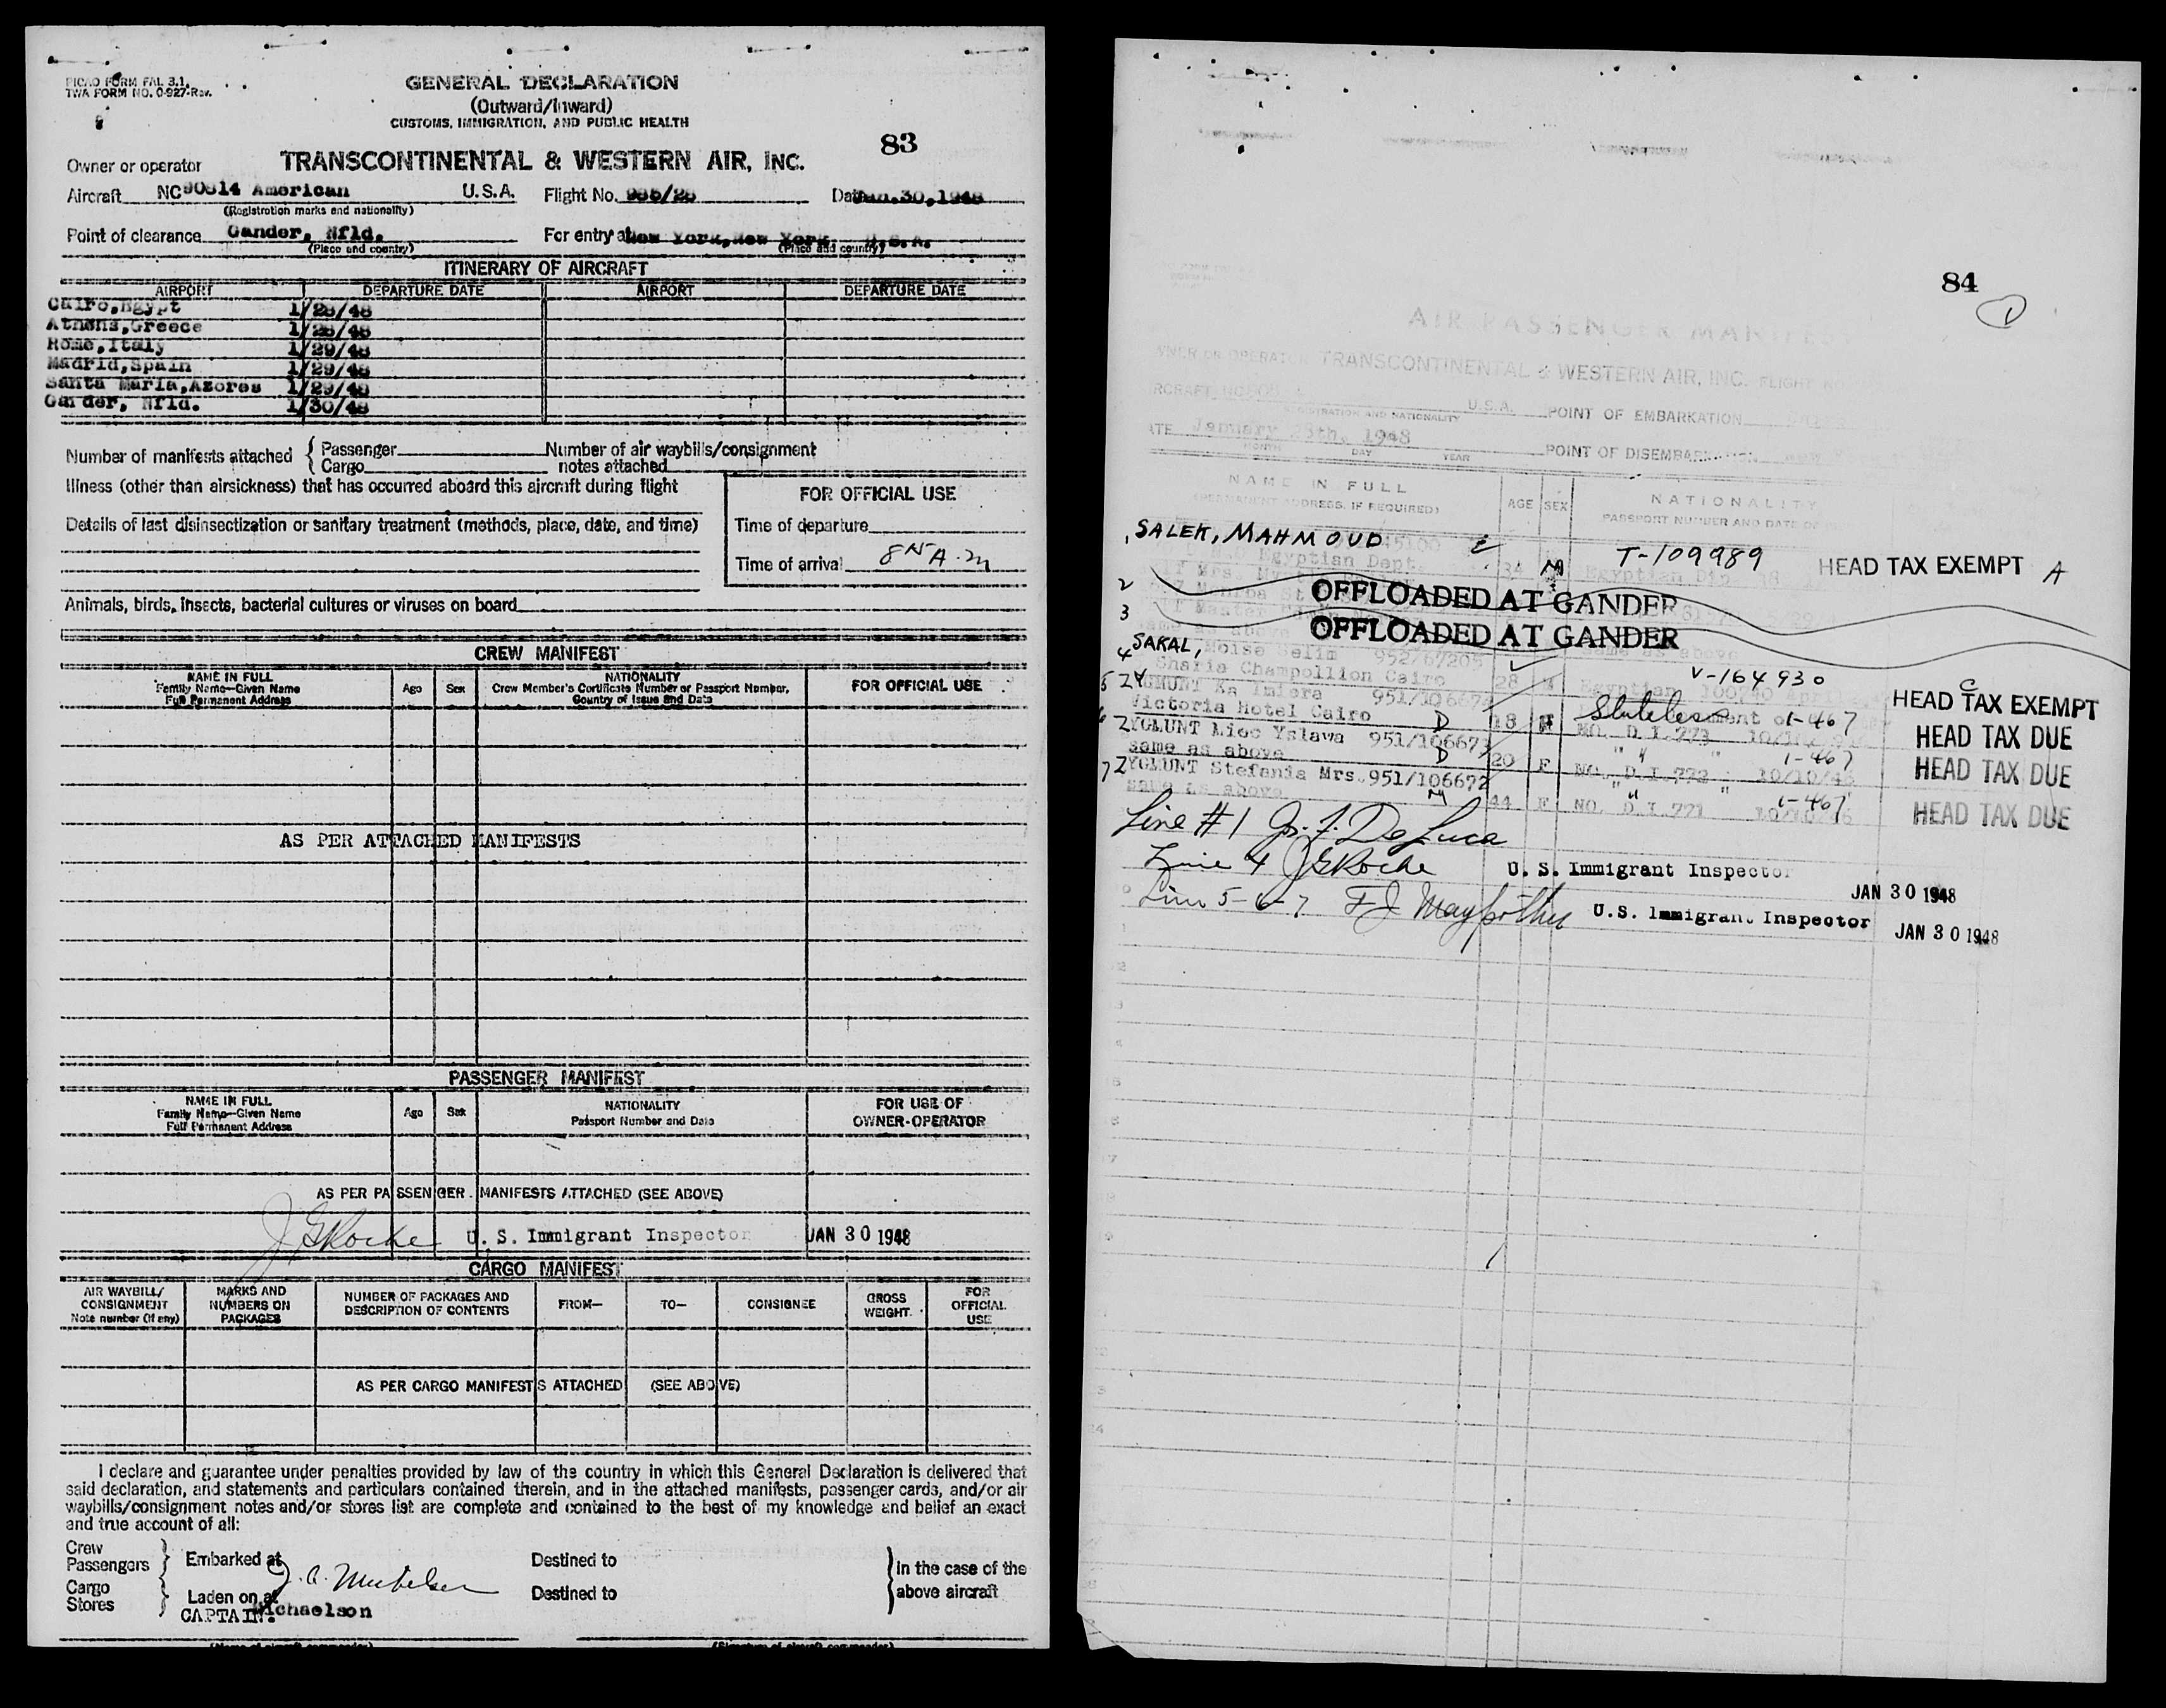 PICAO FORM FAL 3.1.
TWA FORM NO. O-927-Rev.
GENERAL DECLARATION
(Outward/Inward)
CUSTOMS, IMMIGRATION, AND PUBLIC HEALTH
83
Owner or operator TRANSCONTINENTAL & WESTERN AIR, INC.
Aircraft NC 90814 American U.S.A. Flight No. Date Jan.30,1948
(Registration marks and nationality)
Point of clearance Gander, Nfld. For entry at New York, New York, U.S.A.
(Place and country) (Place and country)
ITINERARY OF AIRCRAFT
AIRPORT DEPARTURE DATE AIRPORT DEPARTURE DATE
Cairo,Egypt 1/28/48
Athens,Greece 1/28/48
Rome,Italy 1/29/48
Madrid,Spain 1/29/48
Santa Maria,Azores 1/29/48
Gander, Nfld. 1/30/48
Number of manifests attached { Passenger Number of air waybills/consignment
Cargo notes attached
Illness (other than airsickness) that has occurred aboard this aircraft during flight
FOR OFFICIAL USE
Details of last disinsectization or sanitary treatment (methods, place, date, and time)
Time of departure
Time of arrival A.m
Animals, birds, insects, bacterial cultures or viruses on board
CREW MANIFEST
NAME IN FULL
Family Name—Given Name
Full Permanent Address
Age Sex
NATIONALITY
Crew Member's Certificate Number or Passport Number,
Country of Issue and Date
FOR OFFICIAL USE
AS PER ATTACHED MANIFESTS
PASSENGER MANIFEST
NAME IN FULL
Family Name—Given Name
Full Permanent Address
Age Sex
NATIONALITY
Passport Number and Date
FOR USE OF
OWNER-OPERATOR
AS PER PASSENGER MANIFESTS ATTACHED (SEE ABOVE)
JGRoche U. S. Immigrant Inspector JAN 30 1948
CARGO MANIFEST
AIR WAYBILL/
CONSIGNMENT
Note number (if any)
MARKS AND
NUMBERS ON
PACKAGES
NUMBER OF PACKAGES AND
DESCRIPTION OF CONTENTS
FROM—
TO—
CONSIGNEE
GROSS
WEIGHT
FOR
OFFICIAL
USE
AS PER CARGO MANIFESTS ATTACHED (SEE ABOVE)
I declare and guarantee under penalties provided by law of the country in which this General Declaration is delivered that
said declaration, and statements and particulars contained therein, and in the attached manifests, passenger cards, and/or air
waybills/consignment notes and/or stores list are complete and contained to the best of my knowledge and belief an exact
and true account of all:
Crew
Passengers
Embarked at
Destined to
In the case of the
Cargo
Stores
Laden on at
Destined to
above aircraft
CAPTAIN. Michaelson
(Name of aircraft commander) (Signature of aircraft commander)
84
1
AIR PASSENGER MANIFEST
OWNER OR OPERATOR TRANSCONTINENTAL & WESTERN AIR, INC. FLIGHT NO.
AIRCRAFT U.S.A. POINT OF EMBARKATION
REGISTRATION AND NATIONALITY
DATE January 28th, 1948 POINT OF DISEMBARKATION
MONTH DAY YEAR
NAME IN FULL
(PERMANENT ADDRESS, IF REQUIRED)
AGE SEX
NATIONALITY
PASSPORT NUMBER AND DATE OF
1 SALEH, MAHMOUD T-109989 HEAD TAX EXEMPT A
Egyptian Dept. 34 M
2 OFFLOADED AT GANDER
3 OFFLOADED AT GANDER
same as above
4 SAKAL, Moise Selim 952/67205 V-164930
Sharia Champollion Cairo 28 HEAD TAX EXEMPT
5 ZYGMUNT 951/10667 Stateless 1-467
Victoria Hotel Cairo D 18 F NO. D.I.773 HEAD TAX DUE
6 ZYGMUNT 951/106673 " " " 1-467
same as above D 20 F NO. D.I.772 10/10/46 HEAD TAX DUE
7 ZYGMUNT Stefania Mrs. 951/106672 " " " 1-467
same as above M 44 F NO. D.I.771 10/10/46 HEAD TAX DUE
Line #1 De Luca
Line 4 JGRoche U. S. Immigrant Inspector JAN 30 1948
Line 5-6-7 U.S. Immigrant Inspector JAN 30 1948